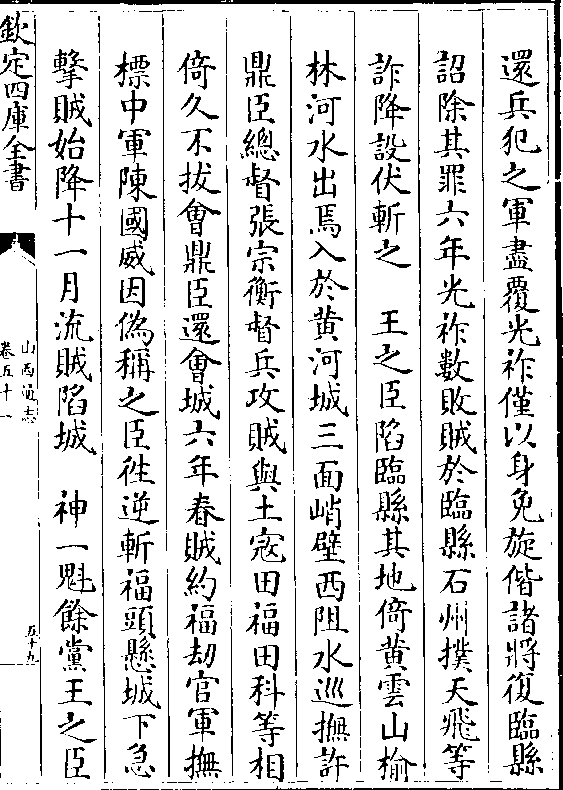 還兵犯之軍盡覆光祚僅以身免旋偕諸將復臨縣
詔除其罪六年光祚數敗賊於臨縣石州撲天飛等
詐降設伏斬之　王之臣陷臨縣其地倚黄雲山榆
林河水出焉入於黄河城三面峭壁西阻水巡撫許
鼎臣總督張宗衡督兵攻賊與土寇田福田科等相
倚久不拔會鼎臣還會城六年春賊約福劫官軍撫
標中軍陳國威因偽稱之臣徃逆斬福頭懸城下急
擊賊始降十一月流賊陷城　神一魁餘黨王之臣
欽定四庫全書
山西通志
卷五十一
五十九